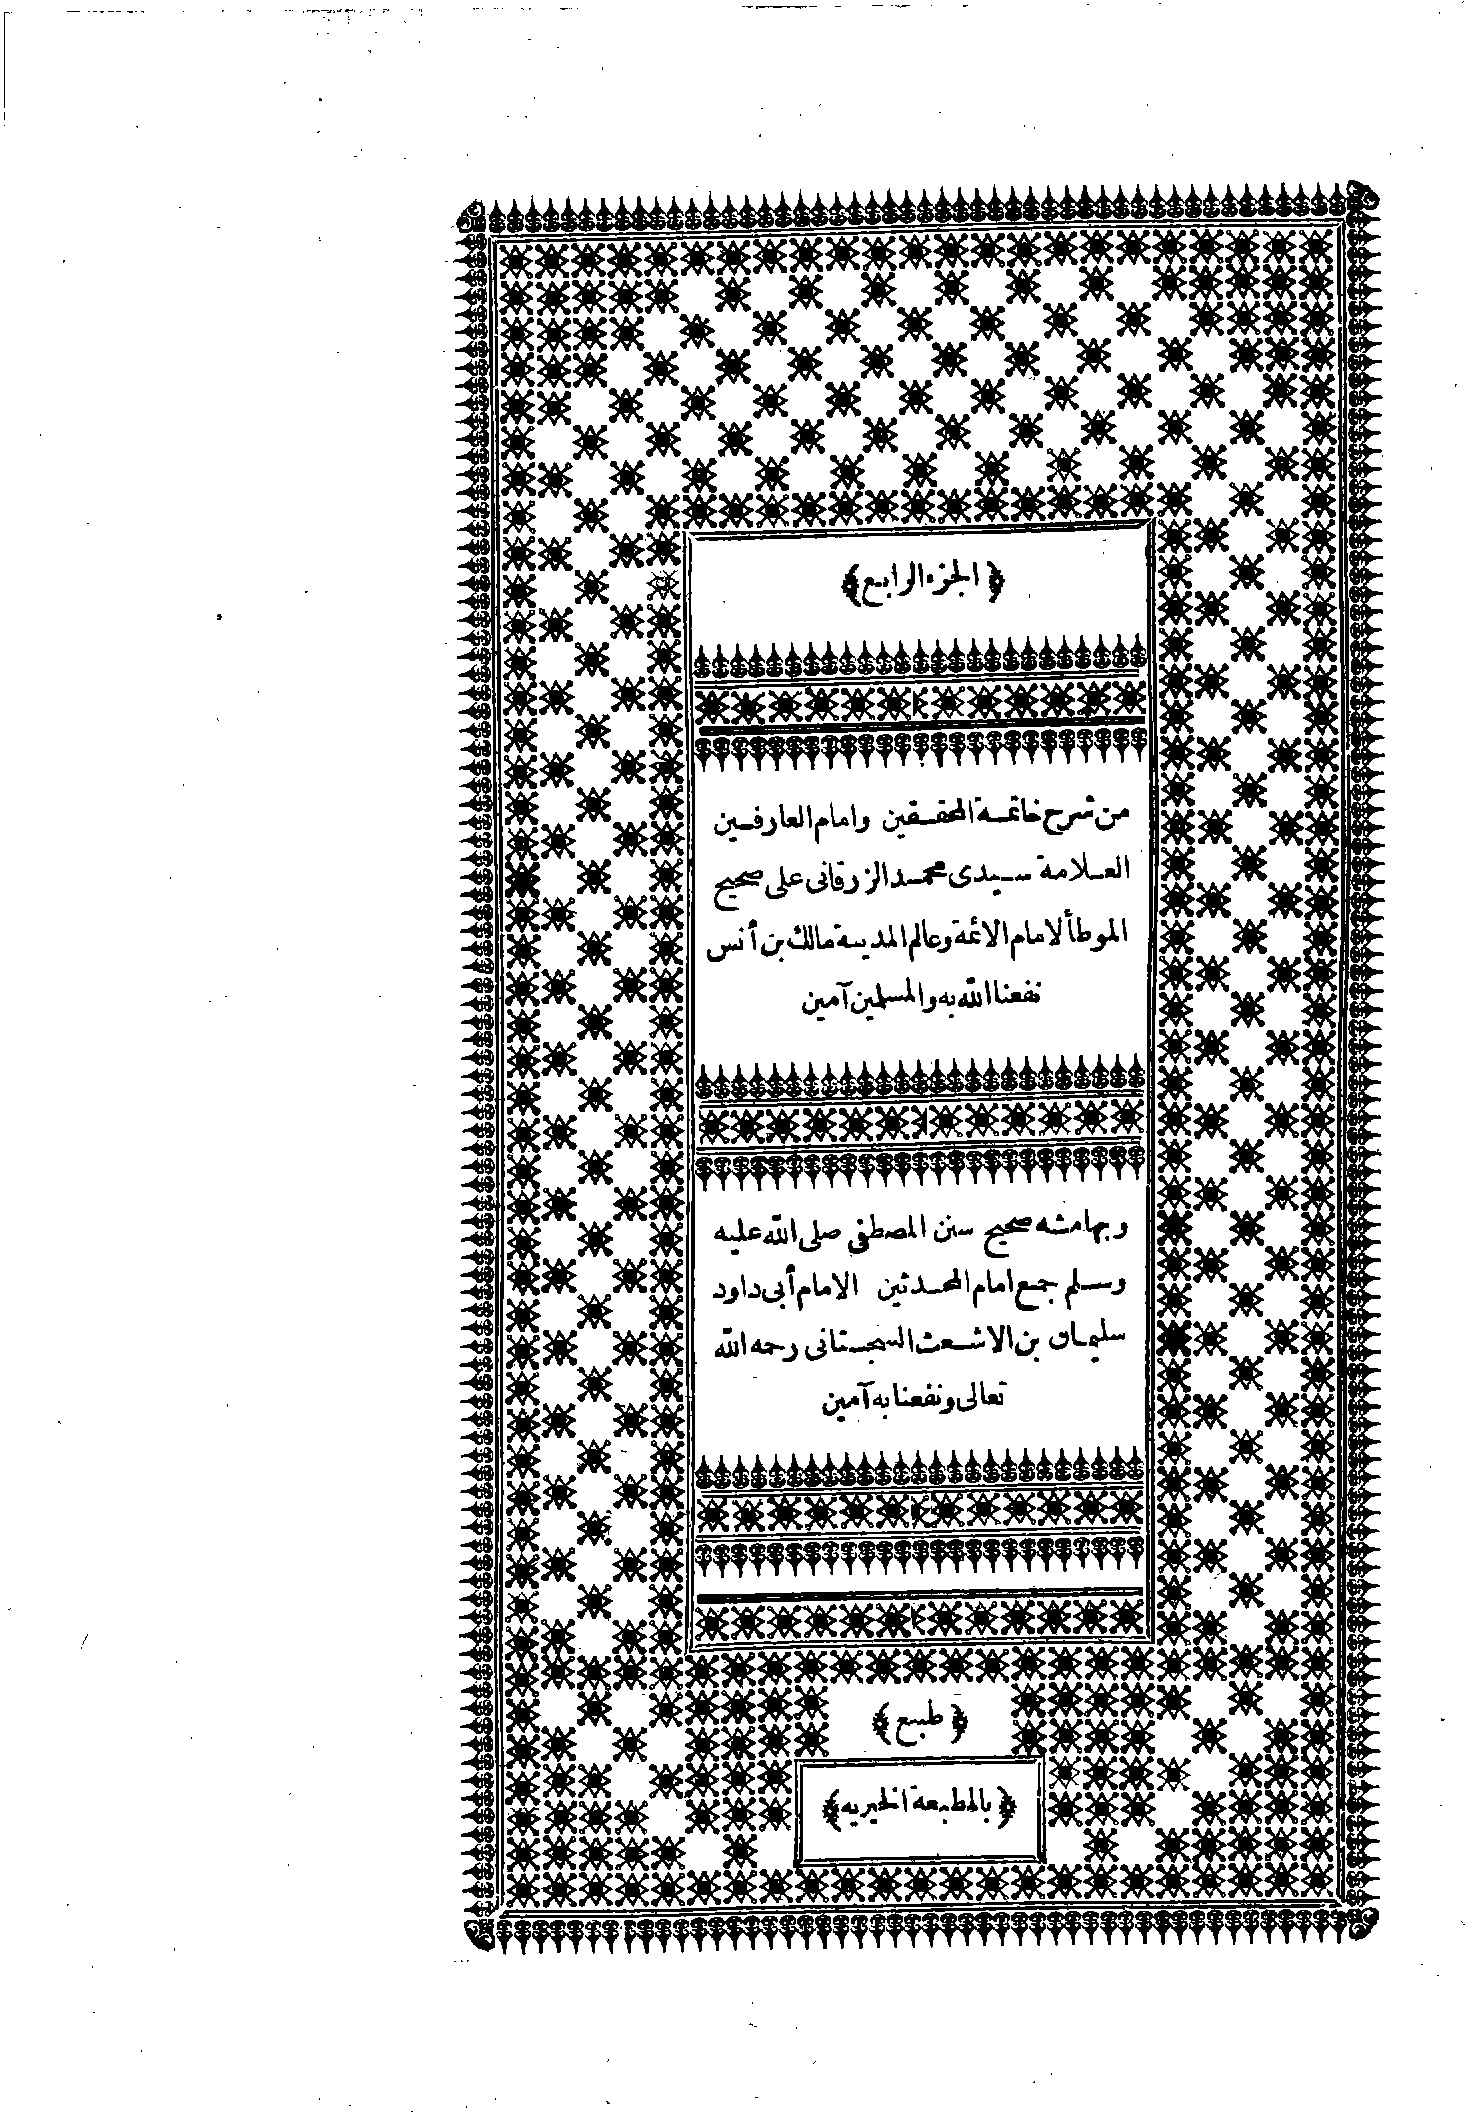 ﴿الجزء الرابع﴾
من شرح خاتمة المحققين وامام العارفين
العلامة سيدى محمد الزرقانى على صحيح
الموطأ لامام الائمة وعالم المدينة مالك بن أنس
نفعنا الله به والمسلمين آمين
وبهامشه صحيح سنن المصطفى صلى الله عليه
وسلم جمع امام المحدثين الامام أبى داود
سليمان بن الاشعث السجستانى رحمه الله
تعالى ونفعنا به آمين
﴿طبع﴾
﴿بالمطبعة الخيريه﴾